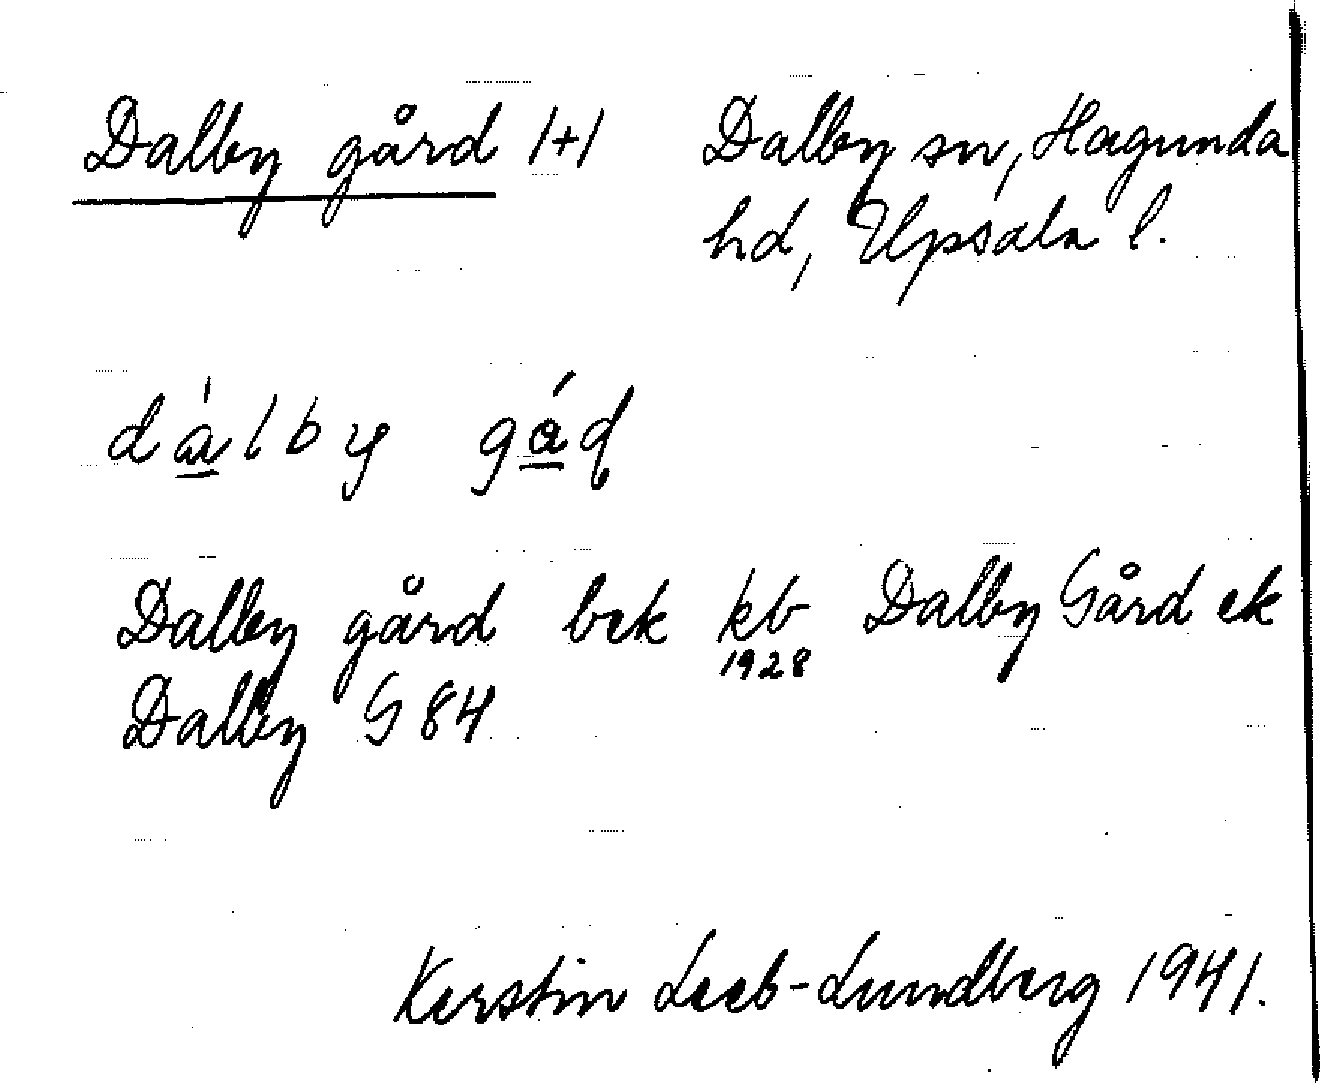 Dalby gård 1+1 Dalby sn, Hagunda
hd, Upsala l.
dálby gåɖ
Dalby gård bek kb 1928 Dalby Gård ek
Dalby G 84
Kerstin Leeb-Lundberg 1941.